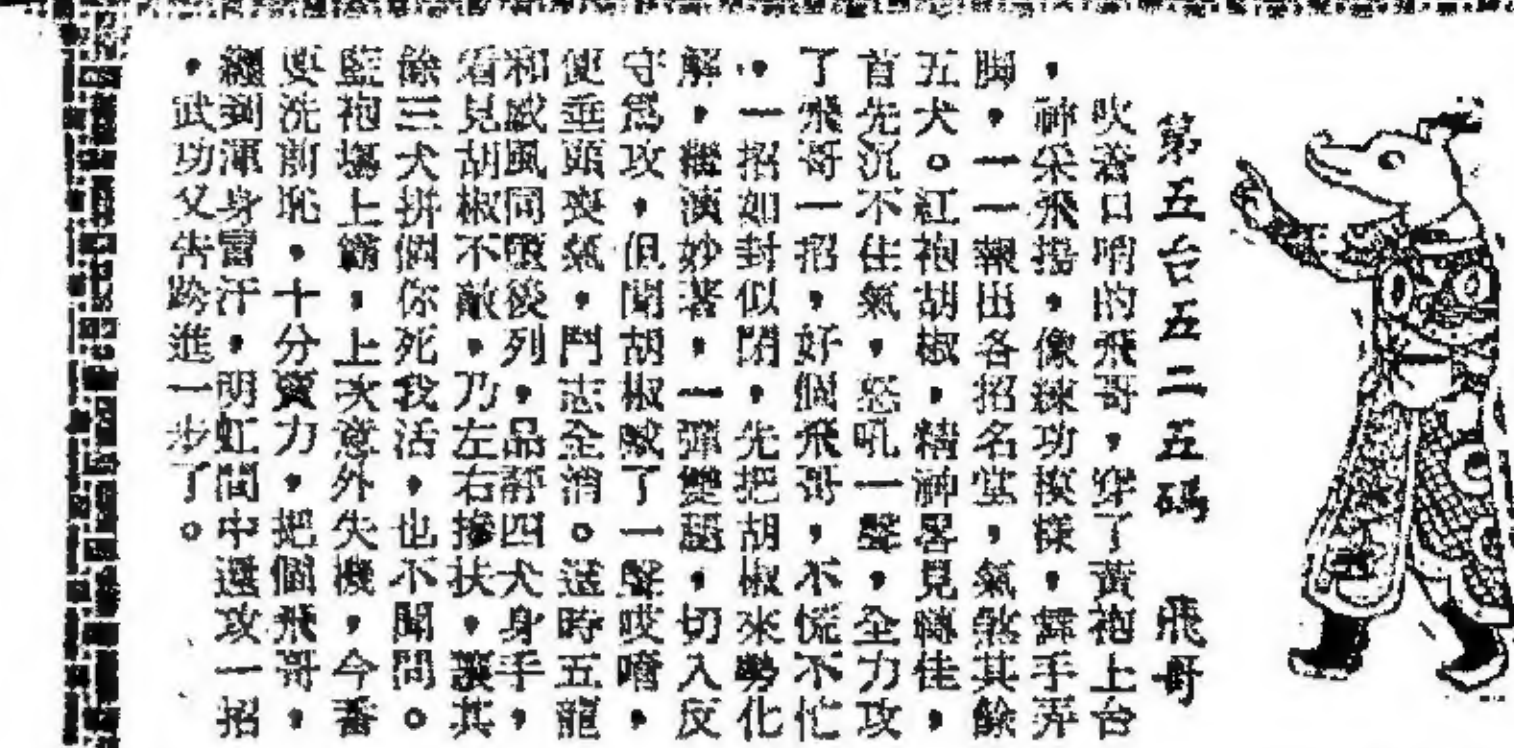 第五台五二五碼　飛哥
吹着口哨的飛哥，穿了黃袍上台
，神采飛揚，像練功模樣，舞手弄
脚，一一報出各招名堂，氣煞其餘
五犬。紅袍胡椒，精神畧見轉佳，
首先沉不住氣，怒吼一聲，全力攻
了飛哥一招，好個飛哥，不慌不忙
，一招如封似閉，先把胡椒來勢化
解，繼演妙著，一彈變惡，切入反
守爲攻，但聞胡椒嗷了一聲哎唷，
便垂頭喪氣，鬥志全消。這時五龍
和威風同墮後列，品評四犬身手，
看見胡椒不敵，乃左右摻扶，讓其
餘三犬拼個你死我活，也不聞問。
藍袍塲上霸，上次意外失機，今番
要洗前恥，十分賣力，把個飛哥，
纏到渾身雷汗，明虹間中還攻一招
，武功又告跨進一步了。